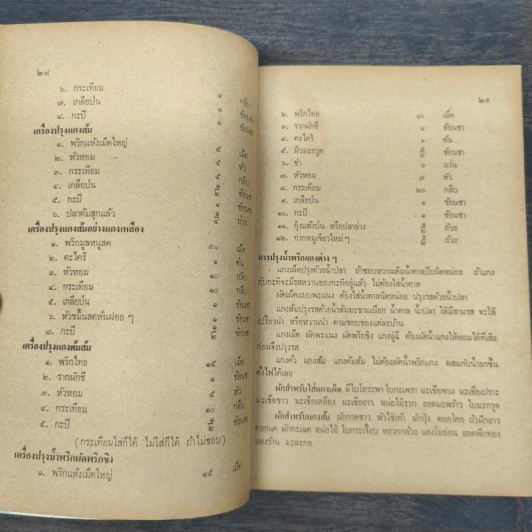 ๒๘
๖. กระเทียม ๔ กลีบ
๗. เกลือป่น ๑ ช้อนชา
๘. กะปิ ๑ ช้อนชา
เครื่องปรุงแกงส้ม
๑. พริกแห้งเม็ดใหญ่ เม็ด
๒. หัวหอม หัว
๓. กระเทียม กลีบ
๔. เกลือป่น ช้อนชา
๕. กะปิ ช้อนชา
๖. ปลาต้มสุกแล้ว ถ้วย
เครื่องปรุงแกงส้มอย่างแกงเหลือง
๑. พริกมูลหนูสด ๓๐ เม็ด
๒. ตะไคร้ ๑ ต้น
๓. หัวหอม ๑๐ กลีบ
๔. กระเทียม ๑๐ กลีบ
๕. เกลือป่น ๑ ช้อนชา
๖. หัวขมิ้นสดหั่นฝอย ๆ ๑ ช้อนชา
๗. กะปิ ช้อนชา
เครื่องปรุงแกงต้มส้ม
๑. พริกไทย ๑๕ เม็ด
๒. รากผักชี ๑ ช้อนชา
๓. หัวหอม ๓ หัว
๔. กระเทียม ๑๐ กลีบ
๕. กะปิ ๑ ช้อนชา
(กระเทียมใส่ก็ได้ ไม่ใส่ก็ได้ ถ้าไม่ชอบ)
เครื่องปรุงน้ำพริกผัดพริกขิง
๑. พริกแห้งเม็ดใหญ่ ๑๕ เม็ด
๒๙
๒. พริกไทย ๑๐ เม็ด
๓. รากผักชี ๑ ช้อนชา
๔. ตะไคร้ ๑ ต้น
๕. ผิวมะกรูด ช้อนชา
๖. ข่า ๖ แว่น
๗. หัวหอม ๗ หัว
๘. กระเทียม ๒๐ กลีบ
๙. เกลือป่น ๑ ช้อนชา
๑๐. กะปิ ๑ ช้อนชา
๑๑. กุ้งแห้งป่น หรือปลาย่าง ถ้วย
๑๒. กากหมูเจียวใหม่ ๆ ถ้วย
การปรุงน้ำพริกแกงต่าง ๆ
แกงเผ็ดปรุงด้วยน้ำปลา ถ้าชอบหวานเติมน้ำตาลปี๊บนิดหน่อย ถ้าแกง
กับกะทิจะมีรสหวานของกะทิอยู่แล้ว ไม่ต้องใส่น้ำตาล
ผัดเผ็ดแบบพะแนง ต้องใส่น้ำตาลนิดหน่อย ปรุงรสด้วยน้ำปลา
แกงส้มปรุงรสด้วยน้ำส้มมะขามเปียก น้ำตาล น้ำปลา ให้มีสามรส จะให้
เปรี้ยวนำ หรือหวานนำ ตามชอบของแต่ละบ้าน
แกงเผ็ด ผัดพะแนง ผัดพริกขิง แกงฉู่ฉี่ ต้องผัดน้ำแกงให้หอมได้ที่เสีย
ก่อนจึงปรุงรส
แกงคั่ว แกงส้ม แกงต้มส้ม ไม่ต้องผัดน้ำพริกแกง ผสมกับน้ำยกขึ้น
ตั้งไฟได้เลย
ผักสำหรับใส่แกงเผ็ด มีใบโหระพา ใบกะเพรา มะเขือพวง มะเขือเปราะ
มะเขือขาว มะเขือเหลือง มะเขือยาว หน่อไม้รวก ยอดมะพร้าว ใบมะกรูด
ผักสำหรับแกงส้ม ผักกาดขาว หัวไชเท้า ผักบุ้ง ดอกโสน ถั่วฝักยาว
ดอกแค ผักกะเฉด หน่อไม้ ใบกระเจี๊ยบ หยวกกล้วย แตงโมอ่อน ยอดฟักทอง
แตงร้าน มะละกอ